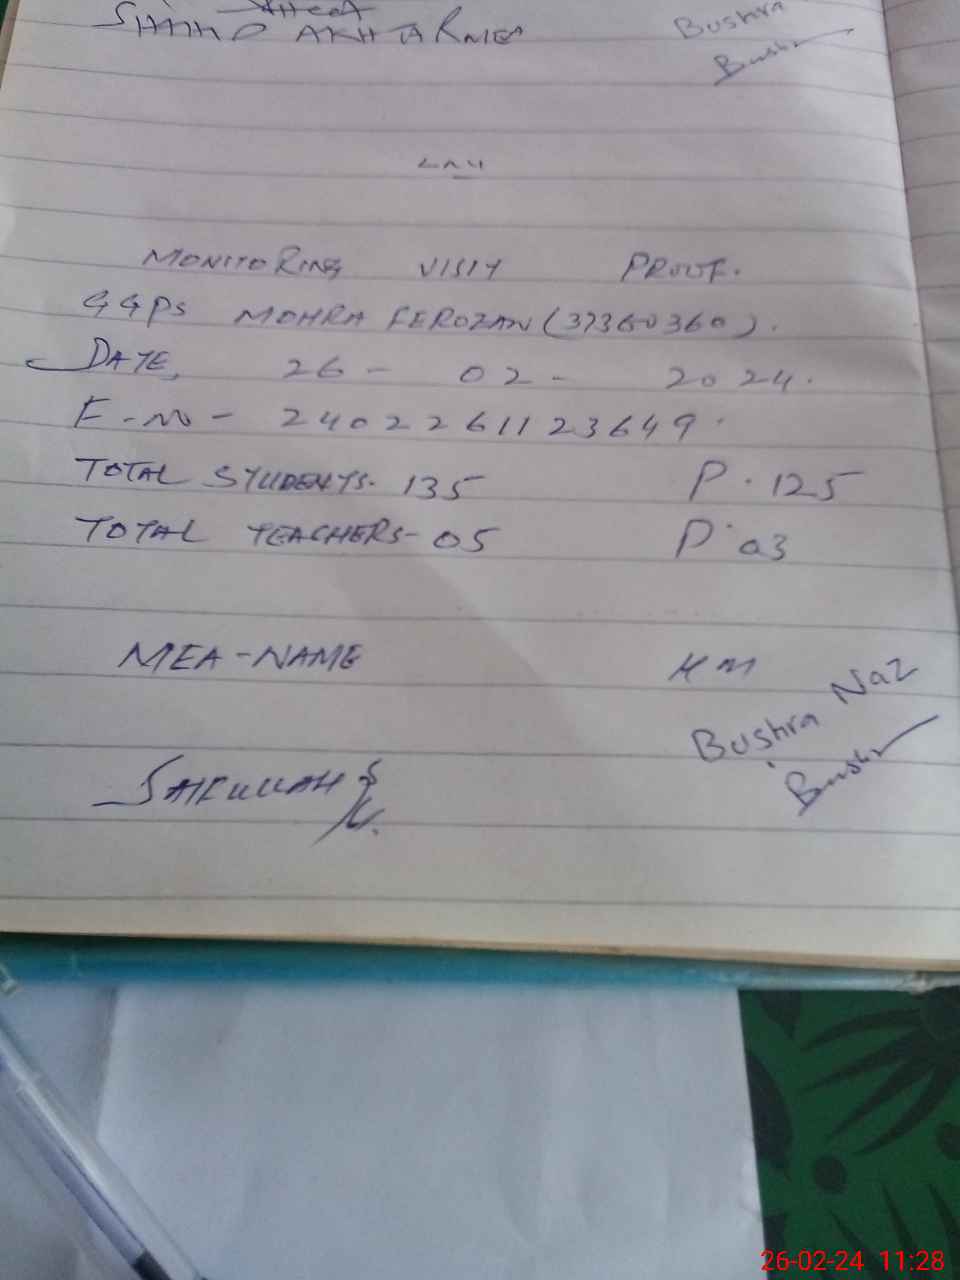 AKHTAR MEA
Bushra
Bushr
MONITORING VISIT PROOF.
GGPS MOHRA FEROZAN (37360360).
DATE, 26 - 02 - 2024.
E-NO - 2402261123649.
TOTAL STUDENTS. 135 P. 125
TOTAL TEACHERS- 05 P. 03
MEA-NAME HM
Bushra Naz
SAIFULLAH
Bushr
26-02-24 11:28